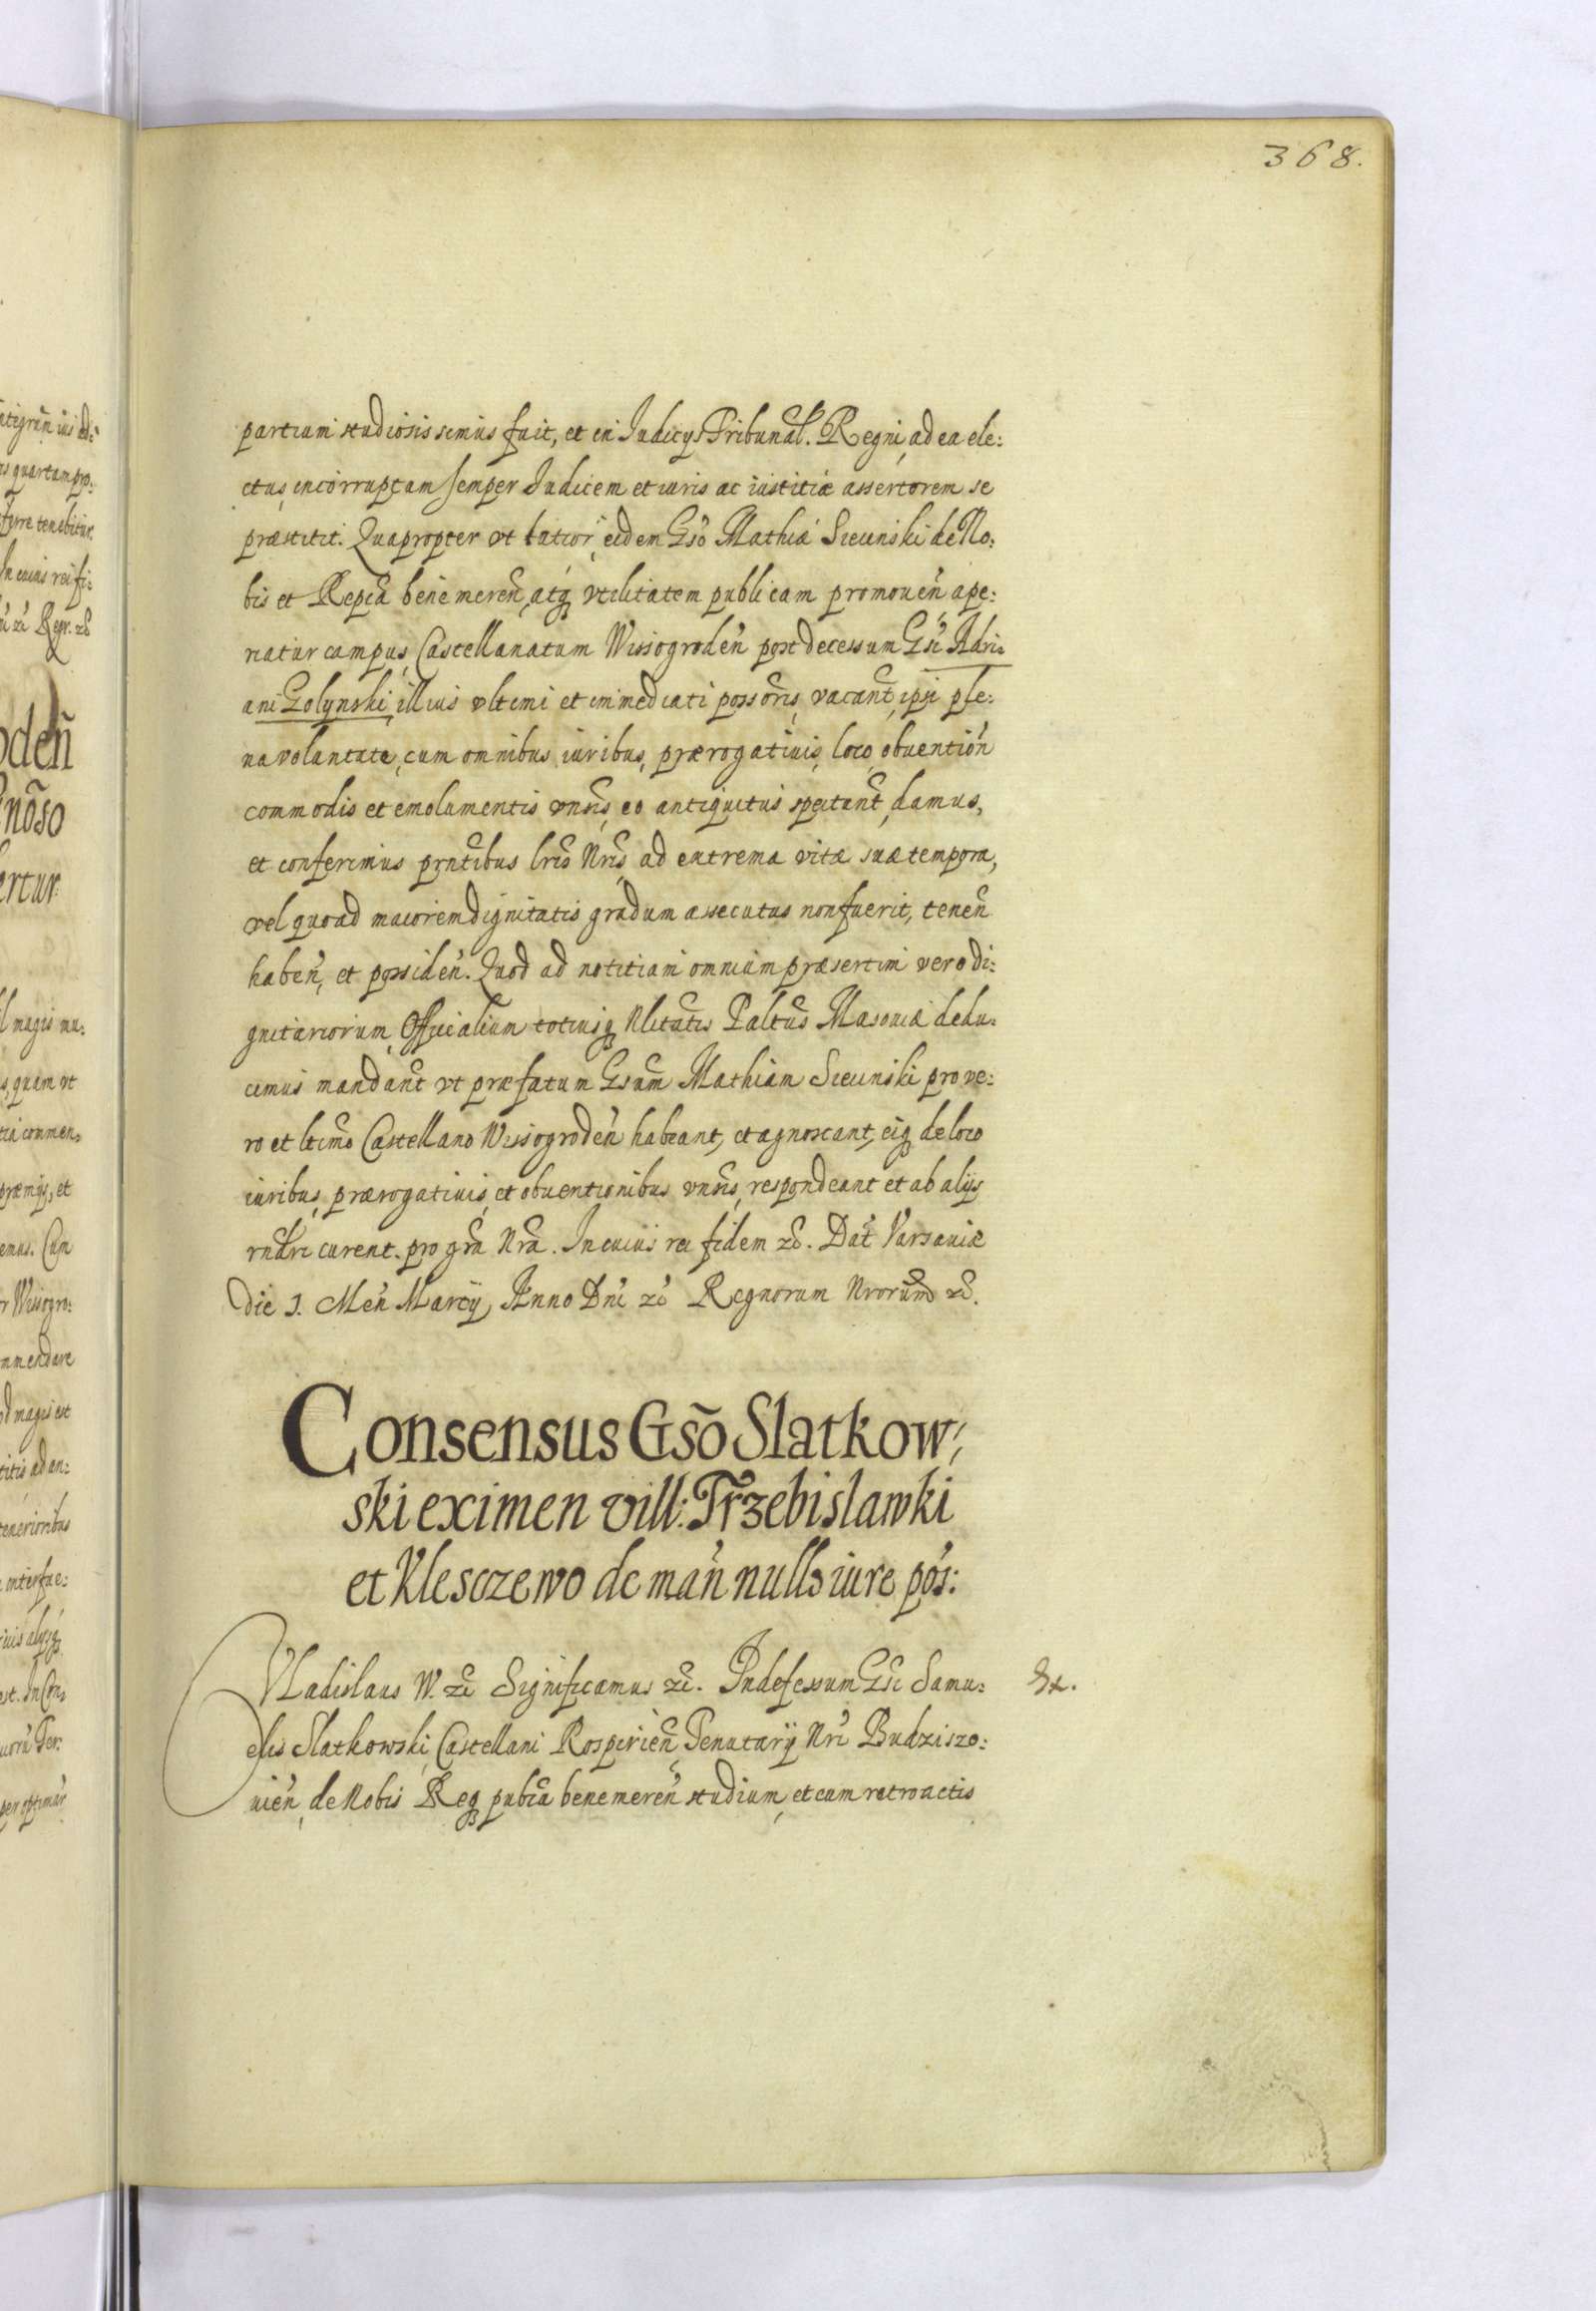 368.
partium studiosissimus fuit, et in Judicijs Tribunal. Regni, ad ea ele:
ctus, incorruptam semper Judicem et iuris ac iustitiæ assertorem se
præstitit. Quapropter vt latior, eidem Gsō Mathiæ Sieciński de No:
bis et Repcā bene meren̄, atq vtilitatem publicam promouen̄ ape:
riatur campus, Castellanatum Wissogroden̄ post decessum Gsī Adri:
ani Golynski, illius vltimi et immediati possōris, vacan̄t, ipsi ple:
na voluntate, cum omnibus iuribus, prærogatiuis, loco, obuention̄
commodis et emolumentis vnīsis, eo antiquitus spectan̄t, damus,
et conferimus pn̄tibus lr̄is Nr̄is, ad extrema vitæ suæ tempora,
vel quoad maiorem dignitatis gradum assecutus non fuerit, tenen̄
haben̄, et possiden̄. Quod ad notitiam omnium præsertim vero di:
gnitariorum, Officialium totiusq Nlitātis Paltūs Masouiæ dedu:
cimus mandan̄t vt præfatum Gsum̄ Mathiam Sieciński pro ve:
ro et ltimō Castellano Wissogroden̄ habeant, et agnoscant, eiq de loco
iuribus, prærogatiuis, et obuentionibus vnīsis, respondeant et ab alijs
rn̄dri curent. pro gr̄a Nr̄a. In cuius rei fidem zc̄. Dat̄ Varsauiæ
Die 1. Men̄ Martij, Anno Dn̄i zc̄ Regnorum Nrorum̄ zc̄.
Consensus Gsō Slatkow:
ski eximen vill: Trzebislawki
et Klesczewo de man̄ nullo iure pos̄:
VLadislaus W. zc̄ Significamus zc̄. Indefessum Gsī Samu:
elis Slatkowski, Castellani Rospirien̄, Tenutarij Nr̄i Budziszo:
uien̄, de Nobis Req pubcā benemeren̄ studium, et cum retroactis